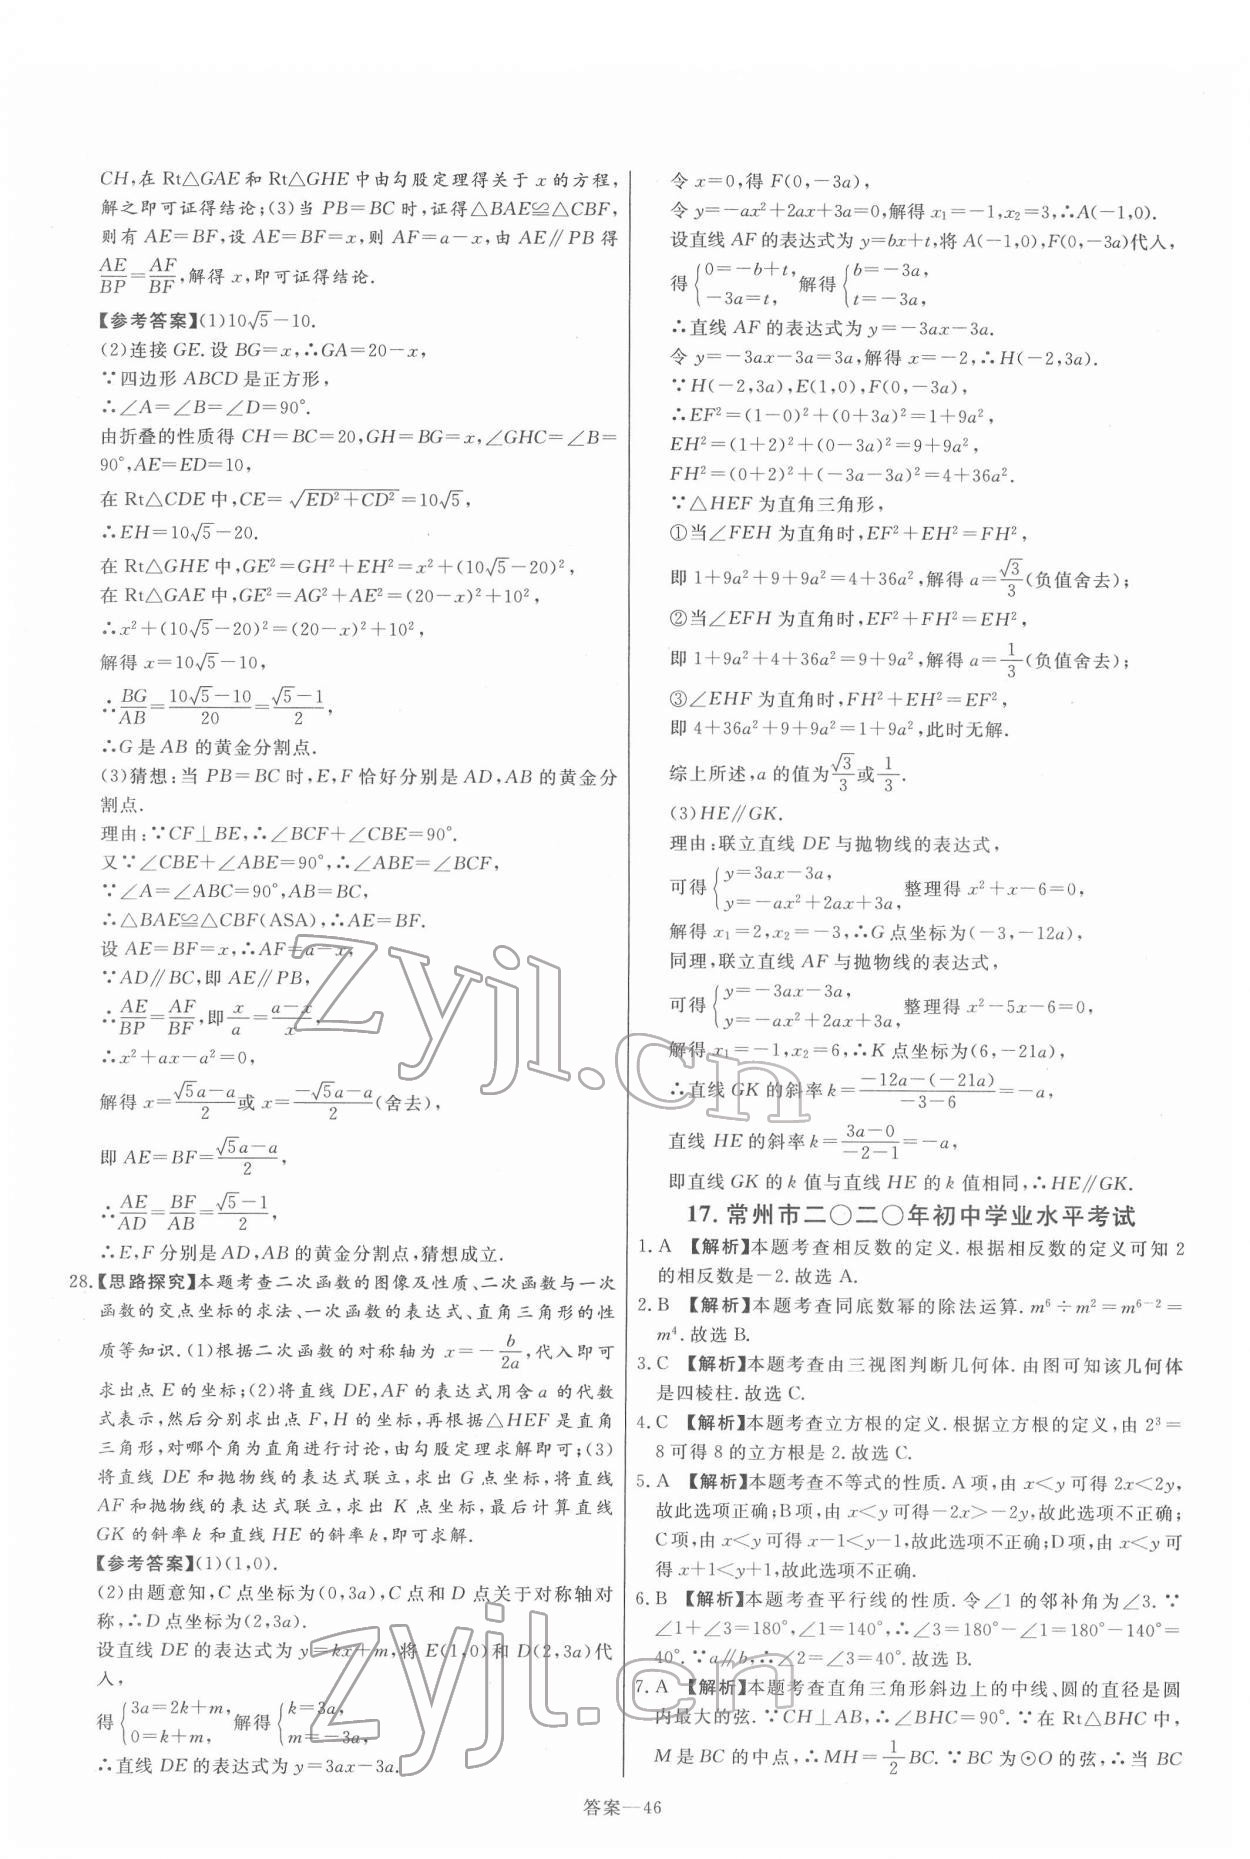 CH,在 Rt△GAE 和 Rt△GHE 中由勾股定理得关于 x 的方程,
解之即可证得结论;(3)当 PB=BC 时,证得△BAE≌△CBF,
则有 AE=BF,设 AE=BF=x,则 AF=a-x,由 AE∥PB 得
AE/BP=AF/BF,解得 x,即可证得结论.
【参考答案】(1)10√5-10.
(2)连接 GE.设 BG=x,∴GA=20-x,
∵四边形 ABCD 是正方形,
∴∠A=∠B=∠D=90°.
由折叠的性质得 CH=BC=20,GH=BG=x,∠GHC=∠B=
90°,AE=ED=10,
在 Rt△CDE 中,CE=√(ED²+CD²)=10√5,
∴EH=10√5-20.
在 Rt△GHE 中,GE²=GH²+EH²=x²+(10√5-20)²,
在 Rt△GAE 中,GE²=AG²+AE²=(20-x)²+10²,
∴x²+(10√5-20)²=(20-x)²+10²,
解得 x=10√5-10,
∴BG/AB=(10√5-10)/20=(√5-1)/2,
∴G 是 AB 的黄金分割点.
(3)猜想:当 PB=BC 时,E,F 恰好分别是 AD,AB 的黄金分
割点.
理由:∵CF⊥BE,∴∠BCF+∠CBE=90°.
又∵∠CBE+∠ABE=90°,∴∠ABE=∠BCF,
∵∠A=∠ABC=90°,AB=BC,
∴△BAE≌△CBF(ASA),∴AE=BF.
设 AE=BF=x,∴AF=a-x,
∵AD∥BC,即 AE∥PB,
∴AE/BP=AF/BF,即x/a=(a-x)/x,
∴x²+ax-a²=0,
解得 x=(√5a-a)/2或 x=(-√5a-a)/2(舍去),
即 AE=BF=(√5a-a)/2,
∴AE/AD=BF/AB=(√5-1)/2,
∴E,F 分别是 AD,AB 的黄金分割点,猜想成立.
28.【思路探究】本题考查二次函数的图像及性质、二次函数与一次
函数的交点坐标的求法、一次函数的表达式、直角三角形的性
质等知识.(1)根据二次函数的对称轴为 x=-b/2a,代入即可
求出点 E 的坐标;(2)将直线 DE,AF 的表达式用含 a 的代数
式表示,然后分别求出点 F,H 的坐标,再根据△HEF 是直角
三角形,对哪个角为直角进行讨论,由勾股定理求解即可;(3)
将直线 DE 和抛物线的表达式联立,求出 G 点坐标,将直线
AF 和抛物线的表达式联立,求出 K 点坐标,最后计算直线
GK 的斜率 k 和直线 HE 的斜率 k,即可求解.
【参考答案】(1)(1,0).
(2)由题意知,C 点坐标为(0,3a),C 点和 D 点关于对称轴对
称,∴D 点坐标为(2,3a).
设直线 DE 的表达式为 y=kx+m,将 E(1,0)和 D(2,3a)代
入,
得{3a=2k+m, 0=k+m, 解得{k=3a, m=-3a,
∴直线 DE 的表达式为 y=3ax-3a.
令 x=0,得 F(0,-3a),
令 y=-ax²+2ax+3a=0,解得 x₁=-1,x₂=3,∴A(-1,0).
设直线 AF 的表达式为 y=bx+t,将 A(-1,0),F(0,-3a)代入,
得{0=-b+t, -3a=t, 解得{b=-3a, t=-3a,
∴直线 AF 的表达式为 y=-3ax-3a.
令 y=-3ax-3a=3a,解得 x=-2,∴H(-2,3a).
∵H(-2,3a),E(1,0),F(0,-3a),
∴EF²=(1-0)²+(0+3a)²=1+9a²,
EH²=(1+2)²+(0-3a)²=9+9a²,
FH²=(0+2)²+(-3a-3a)²=4+36a².
∵△HEF 为直角三角形,
①当∠FEH 为直角时,EF²+EH²=FH²,
即 1+9a²+9+9a²=4+36a²,解得 a=√3/3(负值舍去);
②当∠EFH 为直角时,EF²+FH²=EH²,
即 1+9a²+4+36a²=9+9a²,解得 a=1/3(负值舍去);
③∠EHF 为直角时,FH²+EH²=EF²,
即 4+36a²+9+9a²=1+9a²,此时无解.
综上所述,a 的值为√3/3或1/3.
(3)HE∥GK.
理由:联立直线 DE 与抛物线的表达式,
可得{y=3ax-3a, y=-ax²+2ax+3a, 整理得 x²+x-6=0,
解得 x₁=2,x₂=-3,∴G 点坐标为(-3,-12a),
同理,联立直线 AF 与抛物线的表达式,
可得{y=-3ax-3a, y=-ax²+2ax+3a, 整理得 x²-5x-6=0,
解得 x₁=-1,x₂=6,∴K 点坐标为(6,-21a),
∴直线 GK 的斜率 k=(-12a-(-21a))/(-3-6)=-a,
直线 HE 的斜率 k=(3a-0)/(-2-1)=-a,
即直线 GK 的 k 值与直线 HE 的 k 值相同,∴HE∥GK.
17. 常州市二〇二〇年初中学业水平考试
1. A 【解析】本题考查相反数的定义.根据相反数的定义可知 2
的相反数是-2.故选 A.
2. B 【解析】本题考查同底数幂的除法运算.m⁶÷m²=m⁶⁻²=
m⁴.故选 B.
3. C 【解析】本题考查由三视图判断几何体.由图可知该几何体
是四棱柱.故选 C.
4. C 【解析】本题考查立方根的定义.根据立方根的定义,由 2³=
8 可得 8 的立方根是 2.故选 C.
5. A 【解析】本题考查不等式的性质.A 项,由 x<y 可得 2x<2y,
故此选项正确;B 项,由 x<y 可得-2x>-2y,故此选项不正确;
C 项,由 x<y 可得 x-1<y-1,故此选项不正确;D 项,由 x<y 可
得 x+1<y+1,故此选项不正确.
6. B 【解析】本题考查平行线的性质.令∠1 的邻补角为∠3.∵
∠1+∠3=180°,∠1=140°,∴∠3=180°-∠1=180°-140°=
40°.∵a∥b,∴∠2=∠3=40°.故选 B.
7. A 【解析】本题考查直角三角形斜边上的中线、圆的直径是圆
内最大的弦.∵CH⊥AB,∴∠BHC=90°.∵在 Rt△BHC 中,
M 是 BC 的中点,∴MH=1/2BC.∵BC 为⊙O 的弦,∴当 BC
答案—46
zyjl.cn
zyjl.cn